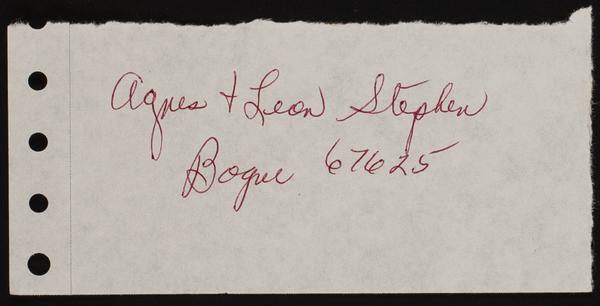 Agnes + Leon Stephen
Bogue 67625